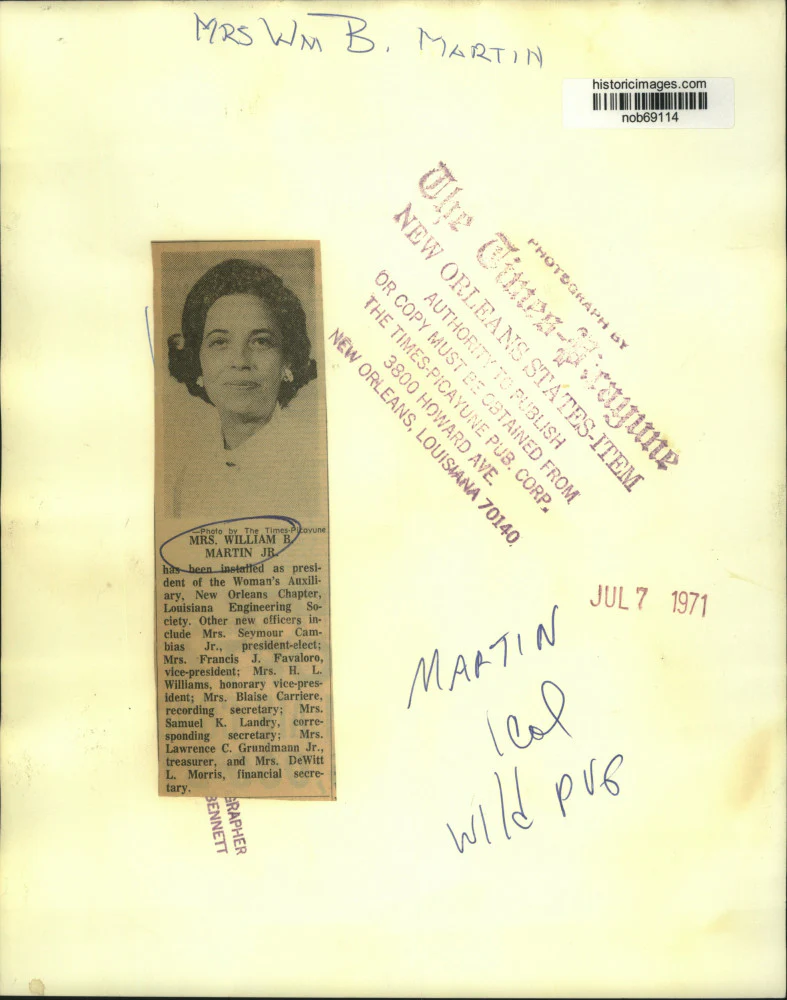 MRS WM B. MARTIN
historicimages.com
nob69114
PHOTOGRAPH BY
The Times-Picayune
NEW ORLEANS STATES-ITEM
AUTHORITY TO PUBLISH
OR COPY MUST BE OBTAINED FROM
THE TIMES-PICAYUNE PUB. CORP.
3800 HOWARD AVE.
NEW ORLEANS, LOUISIANA 70140
—Photo by The Times-Picayune
MRS. WILLIAM B.
MARTIN JR.
has been installed as presi-
dent of the Woman's Auxili-
ary, New Orleans Chapter,
Louisiana Engineering So-
ciety. Other new officers in-
clude Mrs. Seymour Cam-
bias Jr., president-elect;
Mrs. Francis J. Favaloro,
vice-president; Mrs. H. L.
Williams, honorary vice-pres-
ident; Mrs. Blaise Carriere,
recording secretary; Mrs.
Samuel K. Landry, corre-
sponding secretary; Mrs.
Lawrence C. Grundmann Jr.,
treasurer, and Mrs. DeWitt
L. Morris, financial secre-
tary.
JUL 7 1971
MARTIN
1 Col
Wild PUB
GRAPHER
BENNETT